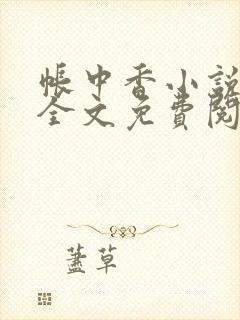 帳中香小說
全文免費閱
蓋草